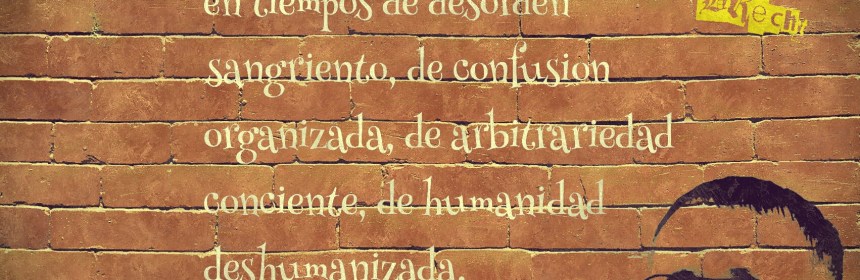 en tiempos de desorden
sangriento, de confusion
organizada, de arbitrariedad
conciente, de humanidad
deshumanizada,